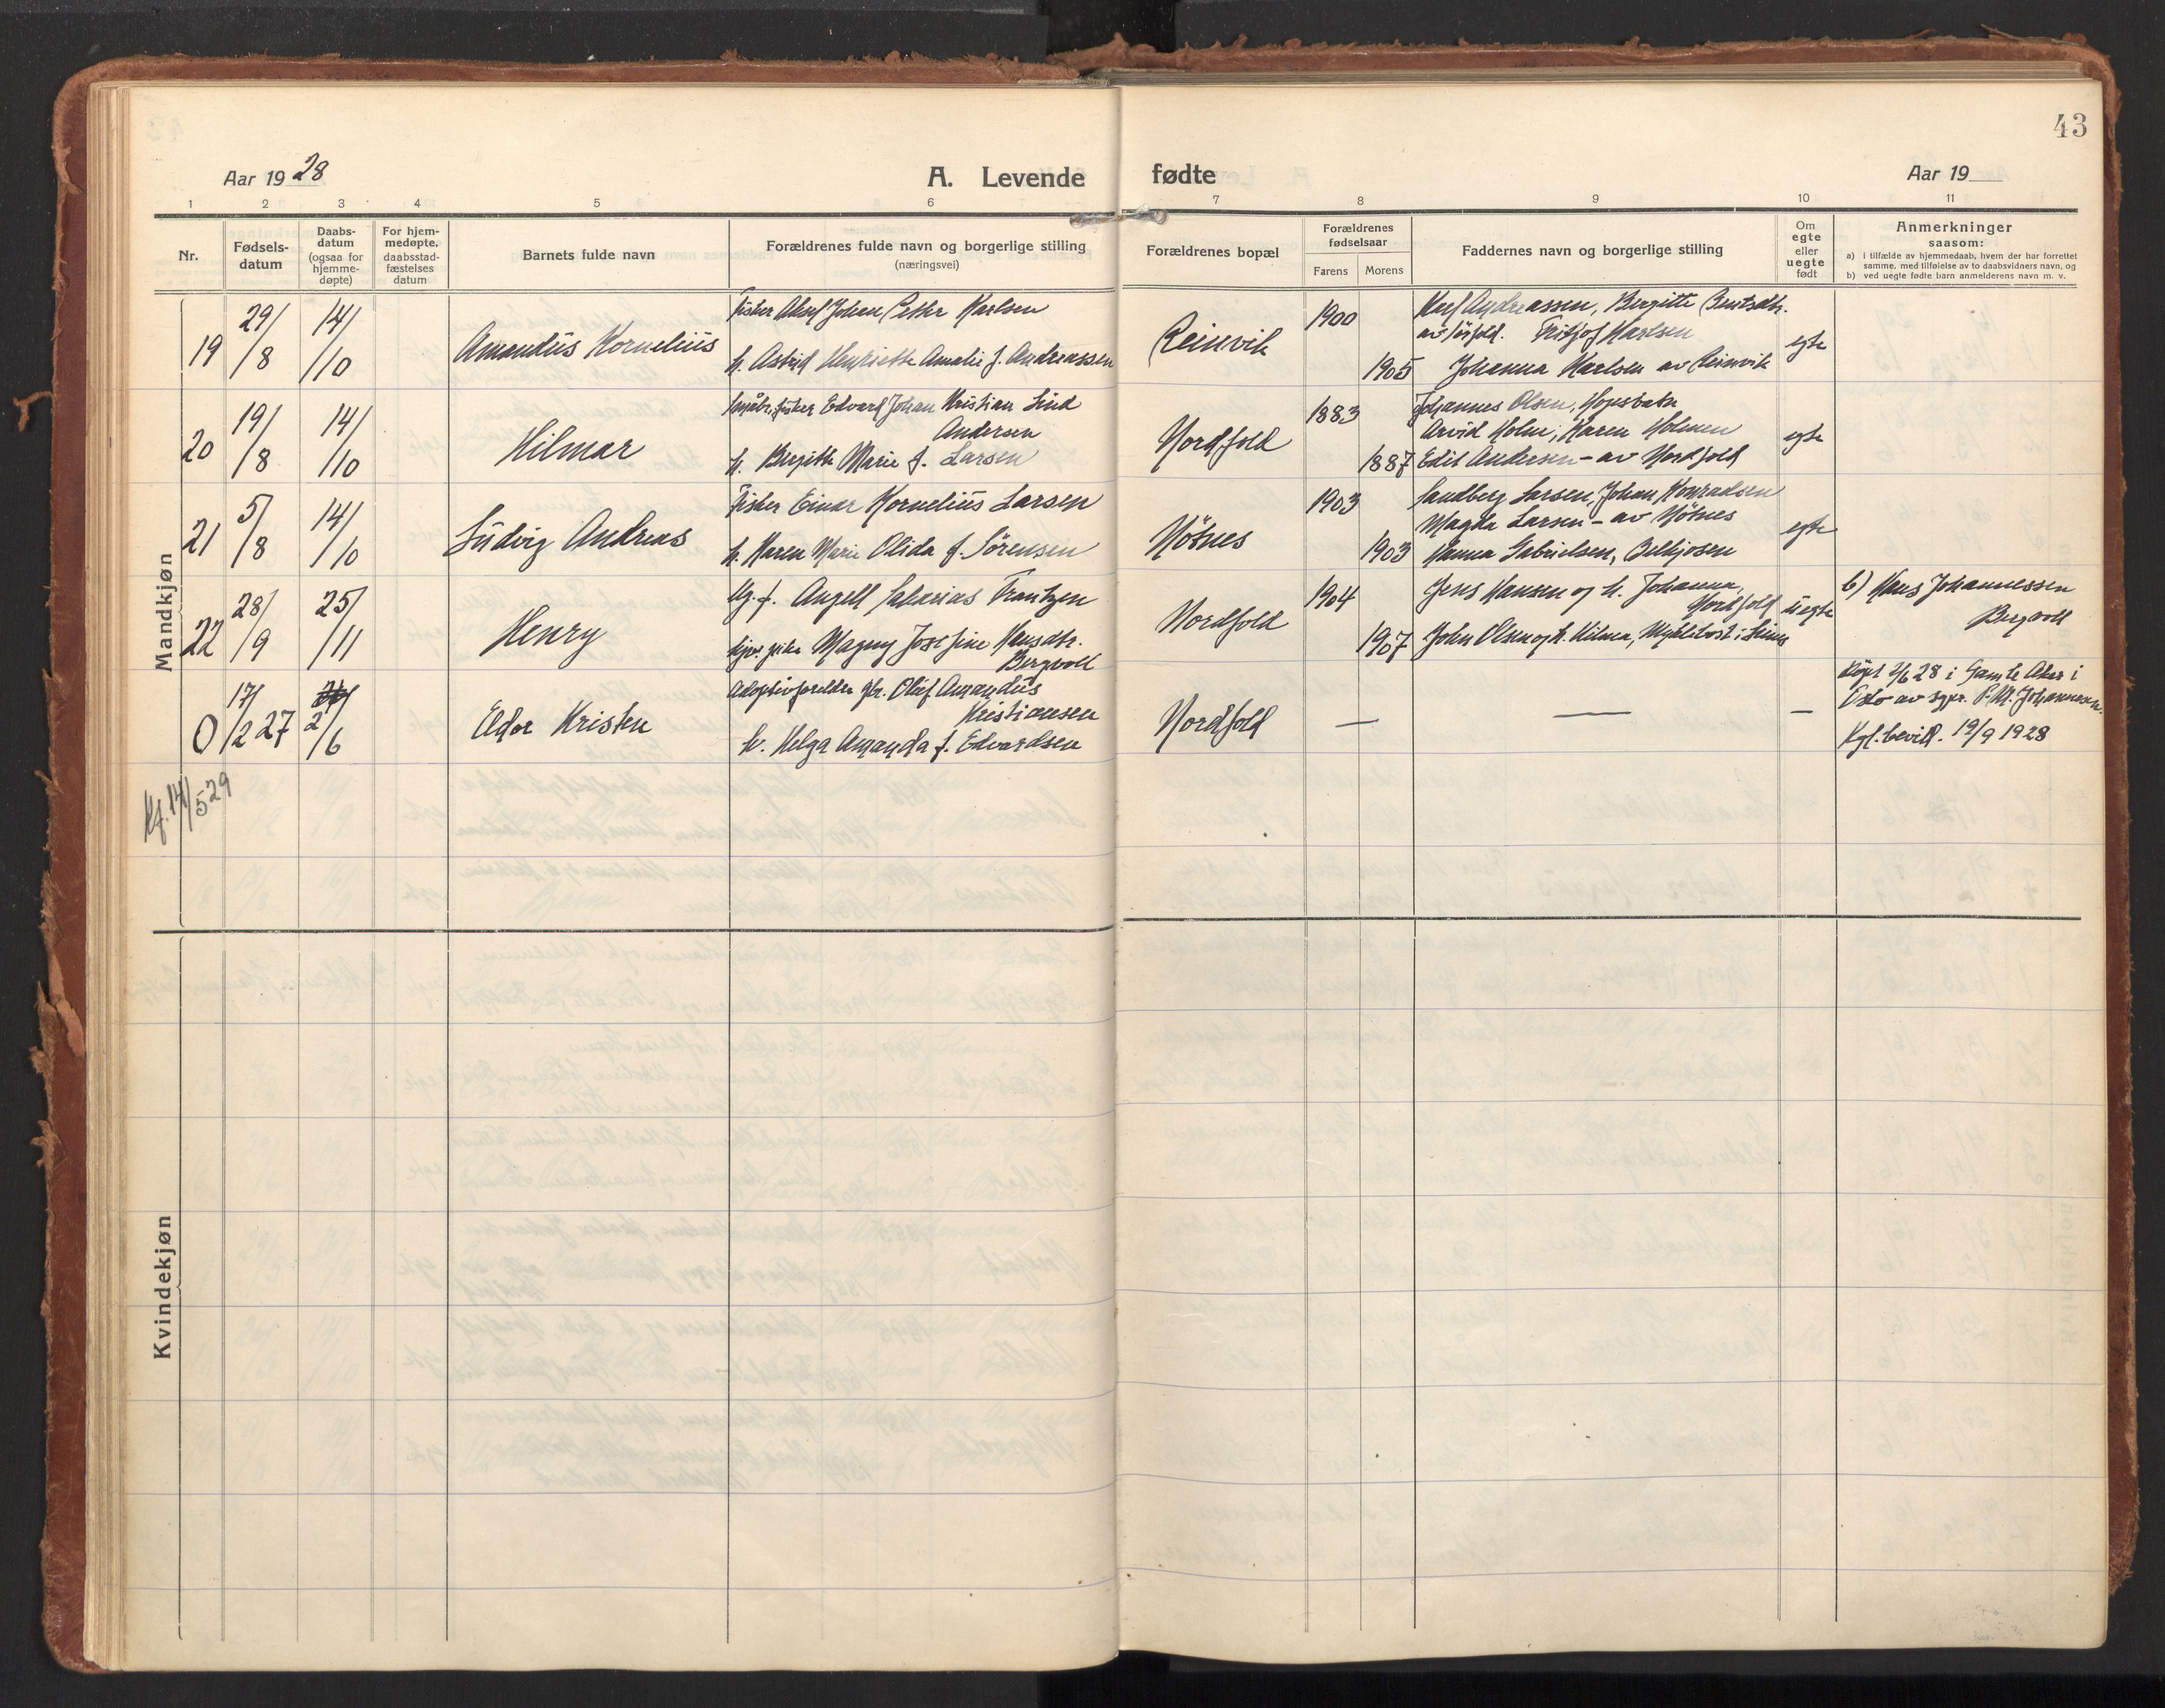 43
Aar 1928
A. Levende fødte
Aar 19
1 2 3 4 5 6 7 8 9 10 11
Nr.
Fødsels-
datum
Daabs-
datum
(ogsaa for
hjemme-
døpte)
For hjem-
medøpte,
daabsstad-
fæstelses
datum
Barnets fulde navn
Forældrenes fulde navn og borgerlige stilling
(næringsvei)
Forældrenes bopæl
Forældrenes
fødselsaar
Farens Morens
Faddernes navn og borgerlige stilling
Om
egte
eller
uegte
født
Anmerkninger
saasom:
a) i tilfælde av hjemmedaab, hvem der har forrettet
samme, med tilføielse av to daabsvidners navn, og
b) ved uegte fødte barn anmelderens navn m. v.
Mandkjøn
19 29/8 14/10 Amandus Kornelius
Fisker Johan Peter Karlsen
h. Astrid Henriette Amalie f. Andreassen
Reinvik
1900
1905
Karl Andreassen, Bergitte Bentsdtr.
av Sörfold. Fritjof Karlsen
Johanna Karlsen av Reinvik
egte
20 19/8 14/10 Hilmar
fisker Edvard Johan Kristian Lind
Andersen
h. Bergitte Marie f. Larsen
Nordfold
1883
1887
Johannes Olsen, Hopsbakk
Arvid Holm, Karen Holmen
Edit Andersen - av Nordfold
egte
21 5/8 14/10 Ludvig Andreas
Fisker Einar Kornelius Larsen
h. Karen Marie Olida f. Sörensen
Nötnes
1903
1903
Sandberg Larsen, Johan Konradsen
Magda Larsen - av Nötnes
Hanna Gabrielsen,
egte
22 28/9 25/11 Henry
Ug. f. Angell Sakarias Frantzen
pike Magny Josefine Hansdtr.
Bergvoll
Nordfold
1904
1907
Jens Hansen og h. Johanna,
Nordfold
John Olsen og h. Hilma,
uegte
b) Hans Johannessen
Bergvoll
0 17/2 27 2/6 Eldor Kristen
Adoptivforeldre gbr. Olaf Amandus
Kristiansen
h. Helga Amanda f. Edvardsen
Nordfold
—
—
—
döpt 2/6 28 i Gamle Aker i
Oslo av sgpr. P. M. Johannesen.
Kgl. bevill. 19/9 1928
Kf. 14/5 29
Kvindekjøn